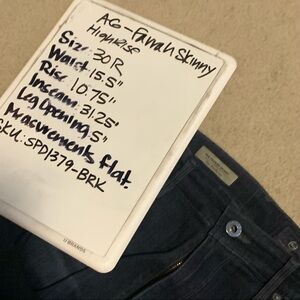 AG-Farrah Skinny
Highrise
Size: 30R
Waist: 15.5"
Rise: 10.75"
Inseam: 31.25"
Leg Opening: 5"
Measurements flat.
SKU: SPD1379-BRK
U BRANDS